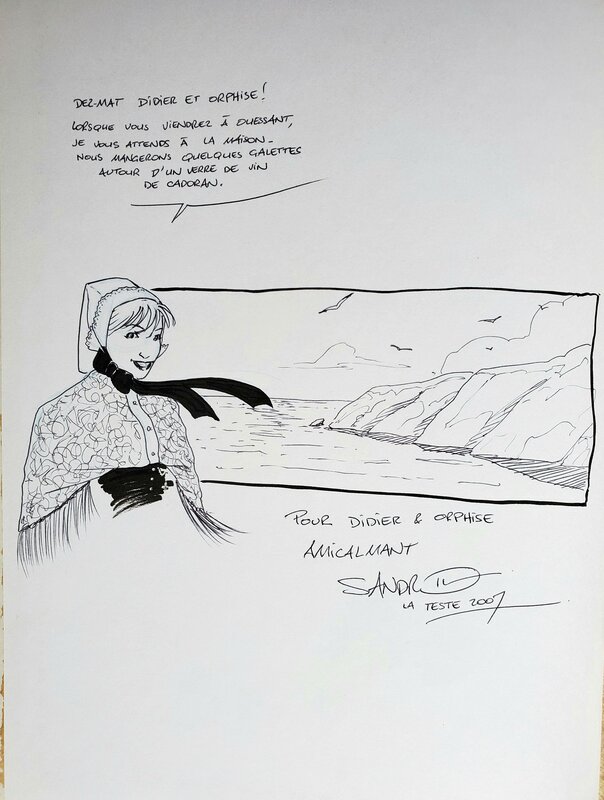 DEZ-MAT DIDIER ET ORPHISE!
LORSQUE VOUS VIENDREZ À OUESSANT,
JE VOUS ATTENDS À LA MAISON.
NOUS MANGERONS QUELQUES GALETTES
AUTOUR D'UN VERRE DE VIN
DE CADORAN.
POUR DIDIER & ORPHISE
AMICALMANT
SANDRO
LA TESTE 2007